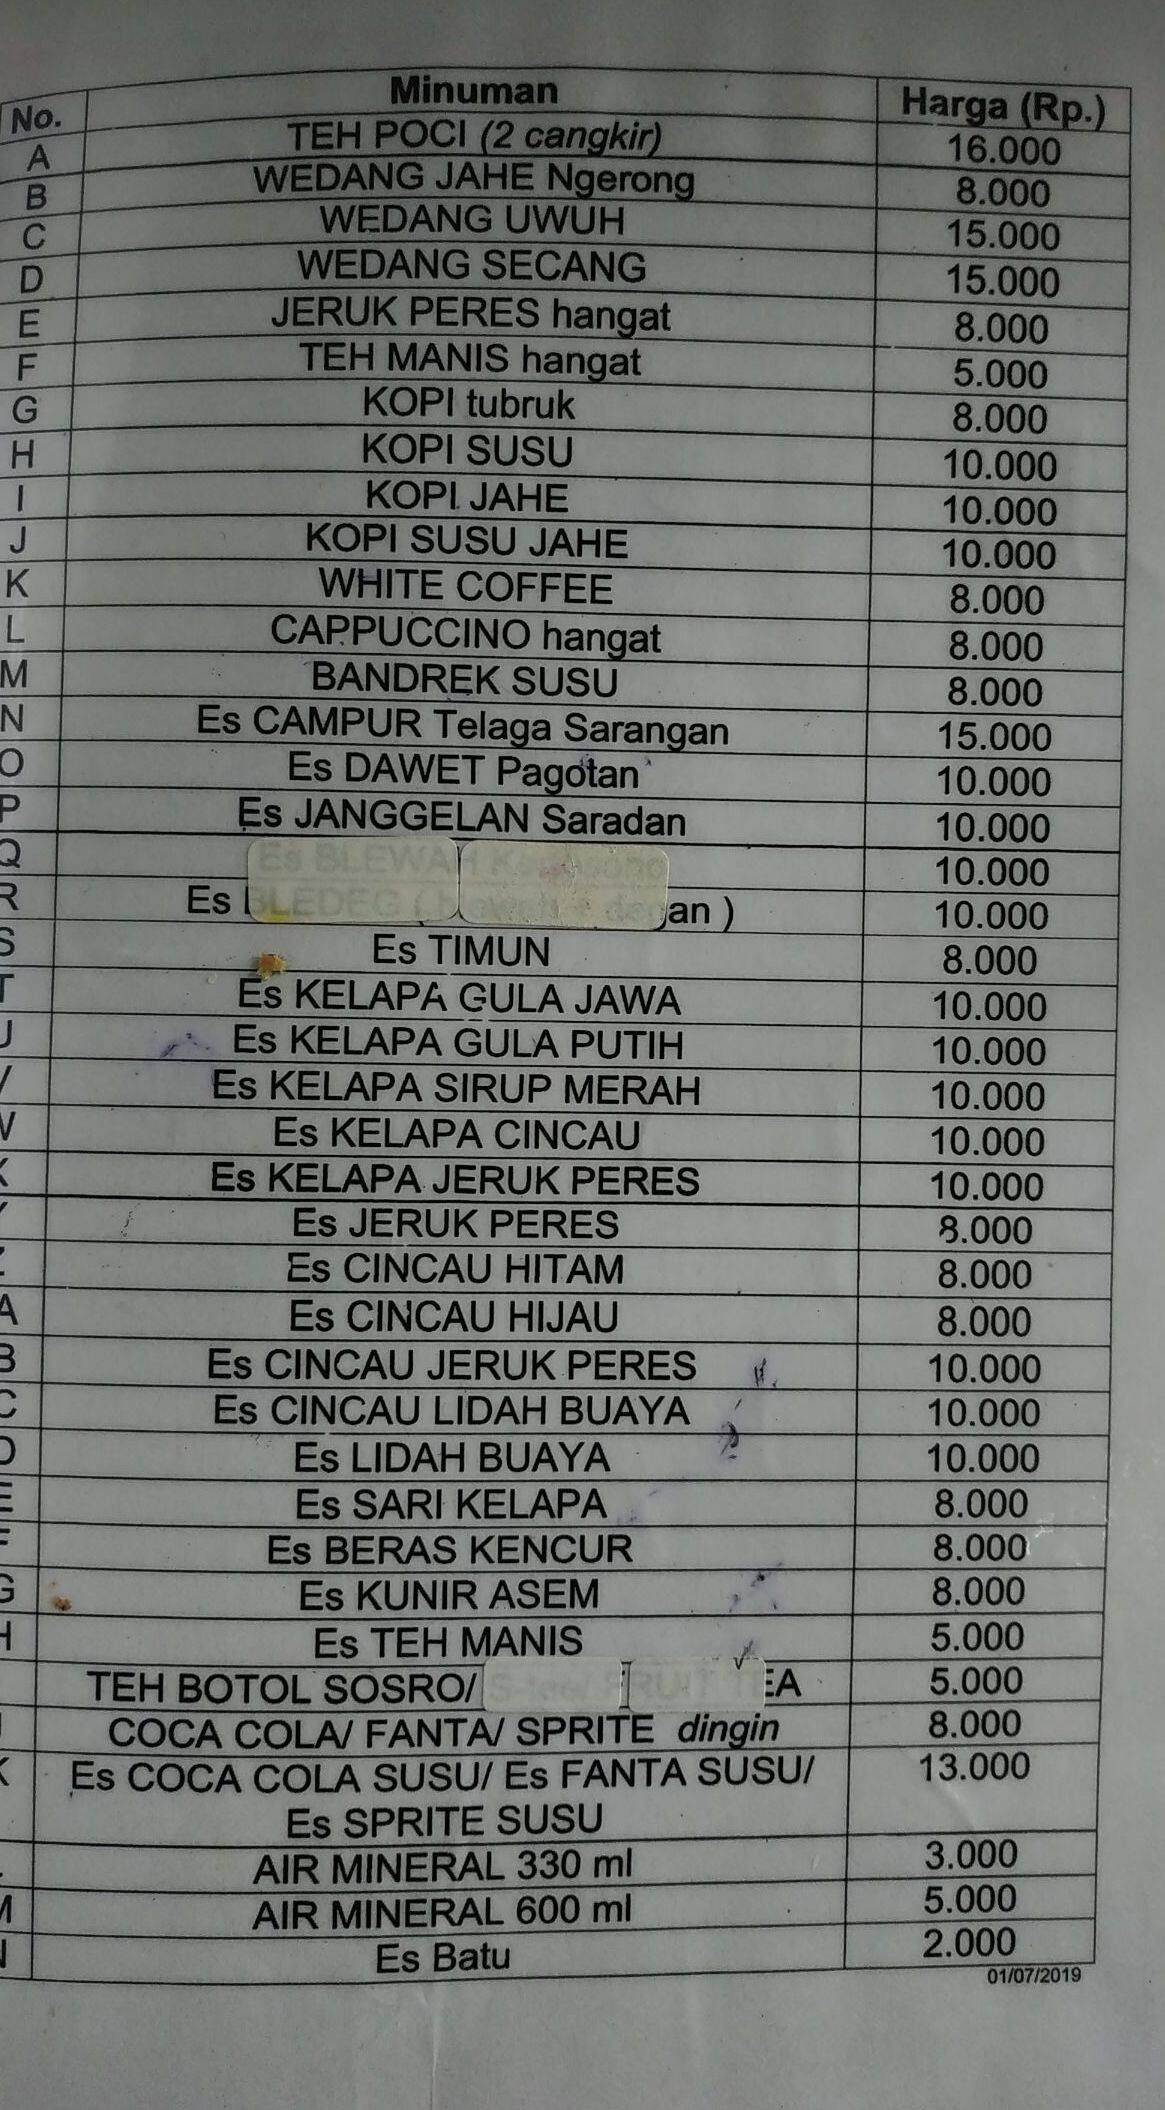 No. Minuman Harga (Rp.)
A TEH POCI (2 cangkir) 16.000
B WEDANG JAHE Ngerong 8.000
C WEDANG UWUH 15.000
D WEDANG SECANG 15.000
E JERUK PERES hangat 8.000
F TEH MANIS hangat 5.000
G KOPI tubruk 8.000
H KOPI SUSU 10.000
I KOPI JAHE 10.000
J KOPI SUSU JAHE 10.000
K WHITE COFFEE 8.000
L CAPPUCCINO hangat 8.000
M BANDREK SUSU 8.000
N Es CAMPUR Telaga Sarangan 15.000
O Es DAWET Pagotan 10.000
P Es JANGGELAN Saradan 10.000
Q Es BLEWAH 10.000
R Es BLEDEG ( blewah + degan ) 10.000
S Es TIMUN 8.000
T Es KELAPA GULA JAWA 10.000
U Es KELAPA GULA PUTIH 10.000
V Es KELAPA SIRUP MERAH 10.000
W Es KELAPA CINCAU 10.000
X Es KELAPA JERUK PERES 10.000
Y Es JERUK PERES 8.000
Z Es CINCAU HITAM 8.000
A Es CINCAU HIJAU 8.000
B Es CINCAU JERUK PERES 10.000
C Es CINCAU LIDAH BUAYA 10.000
D Es LIDAH BUAYA 10.000
E Es SARI KELAPA 8.000
F Es BERAS KENCUR 8.000
G Es KUNIR ASEM 8.000
H Es TEH MANIS 5.000
TEH BOTOL SOSRO/ S-tee/ FRUIT TEA 5.000
COCA COLA/ FANTA/ SPRITE dingin 8.000
K Es COCA COLA SUSU/ Es FANTA SUSU/ 13.000
Es SPRITE SUSU
AIR MINERAL 330 ml 3.000
M AIR MINERAL 600 ml 5.000
Es Batu 2.000
01/07/2019